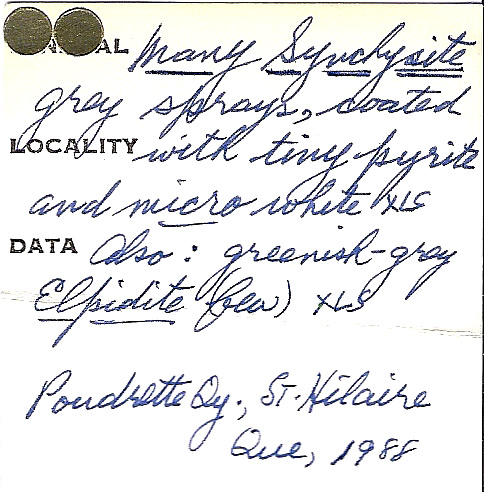 AL Many Synchysite
grey sprays, coated
LOCALITY with tiny pyrite
and micro white XLS
DATA Also : greenish-grey
Elpidite (few) XLS
Poudrette Qy., St. Hilaire
Que, 1988